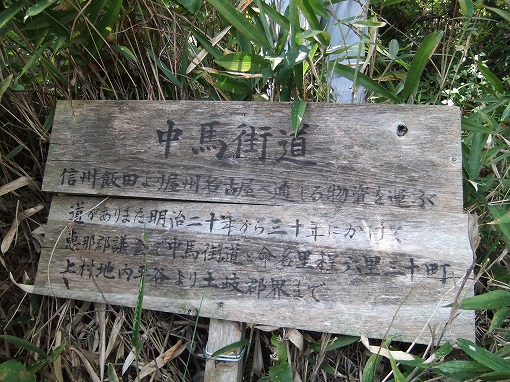 中馬街道
信州飯田より尾州名古屋へ通じる物資を運ぶ
道がありまた明治二十年から三十年にかけ
恵那郡議会で中馬街道と命名里程六里三十町
上村地内平谷より土岐郡界まで